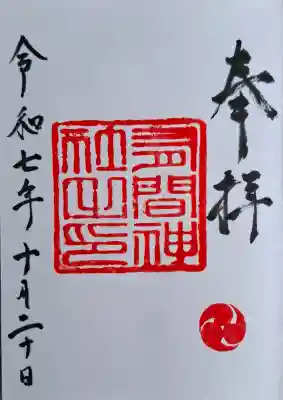 奉拝
有間神社之印
令和七年十月二十日